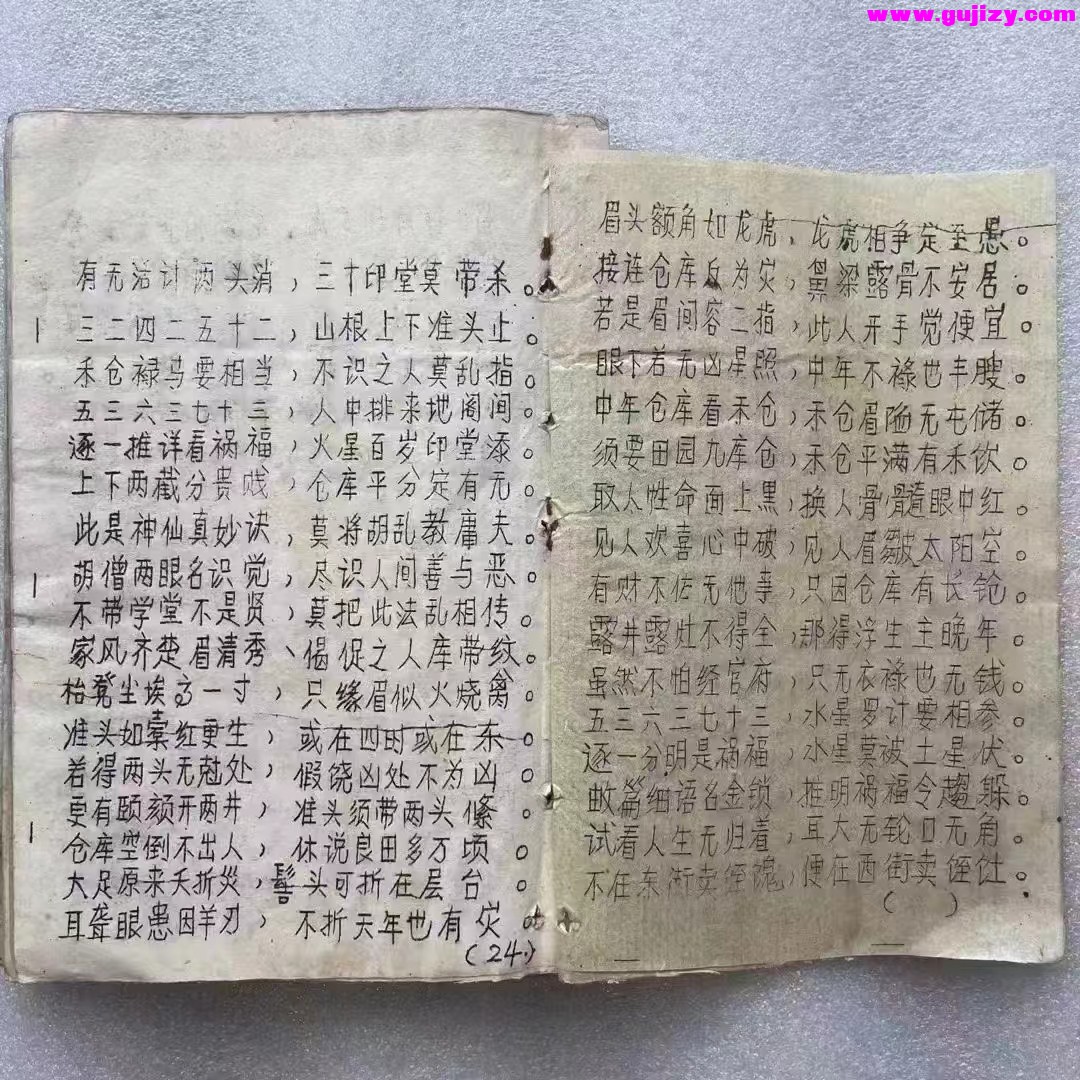 www.gujizy.com
有无活计两头消，三十印堂莫带杀。
三二四二五十二，山根上下准头止
禾仓禄马要相当，不识之人莫乱指。
五三六三七十三，人中排来地阁间
逐一推详看祸福，火星百岁印堂添
上下两截分贵贱，仓库平分定有无。
此是神仙真妙诀，莫将胡乱教庸夫。
胡僧两眼名识觉，尽识人间善与恶。
不带学堂不是贤，莫把此法乱相传。
家风齐楚眉清秀、偈促之人库带纹。
凳尘埃高一寸，只缘眉似火烧禽。
准头如枣红更生，或在四时或在东。
若得两头无尅处，假饶凶处不为凶。
更有颐颏开两井，准头须带两头
仓库空倒不出人，休说良田多万顷。
大足原来夭折災，髻头可折在层台。
耳聋眼患因羊刃，不折天年也有灾
(24.)
眉头额角如龙虎，龙虎相争定至愚。
接连仓库反为灾，鼻梁露骨不安居。
若是眉间容二指，此人开手觉便宜。
眼下若无凶星照，中年不禄也丰
中年仓库看禾仓，禾仓眉陋无屯储
须要田园九库仓，禾仓平满有禾饮。
取人性命面上黑，换人骨髓眼中红
见人欢喜心中破，见人眉皱太阳空
有财不佐无他事，只因仓库有长枪。
露井露灶不得全，那得浮生主晚年。
虽然不怕经官府，只无衣禄也无钱。
五三六三七十三，水星罗计要相参。
逐一分明是祸福，水星莫被土星伏。
篇细语名金锁，推明祸福令趋躲。
试看人生无归着，耳大无轮口无角。
不在东街卖馄，便在西街卖
( )